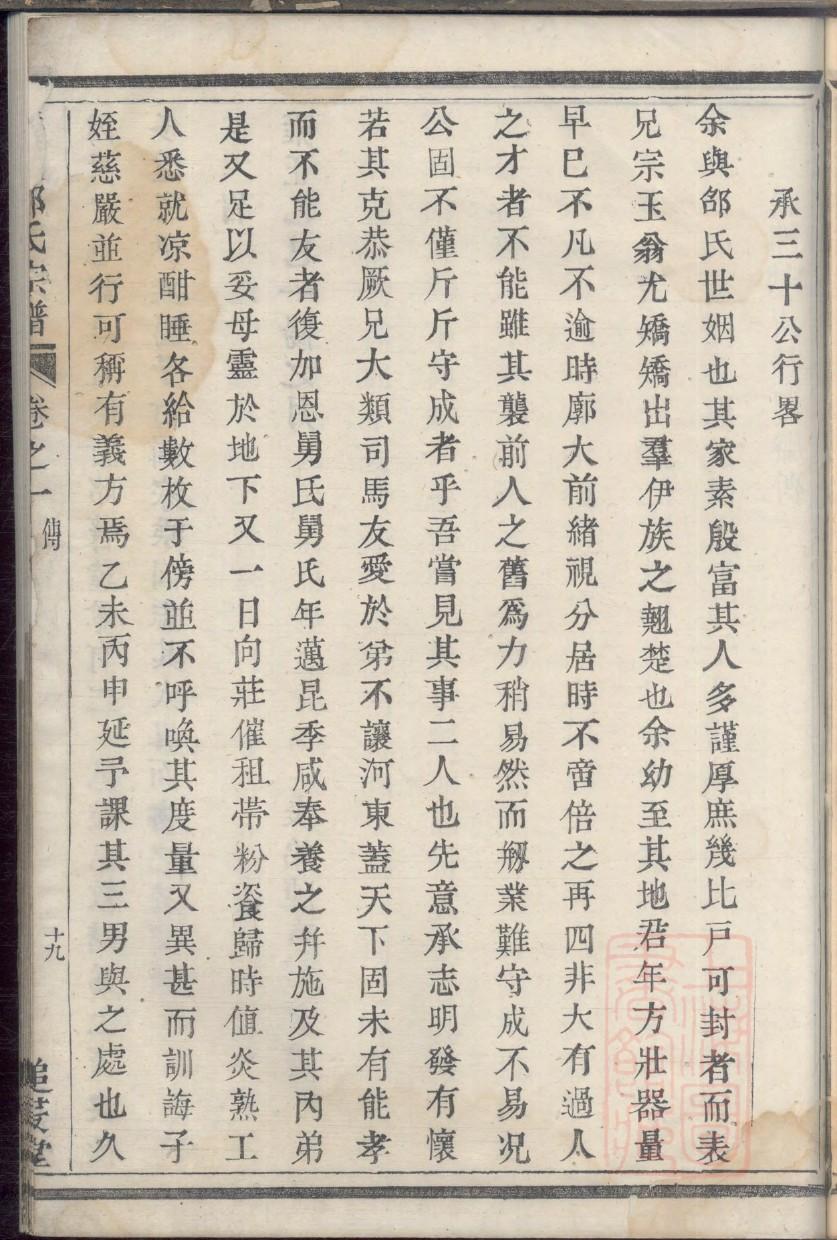 承三十公行畧
余與郃氏世姻也其家素殷富其人多謹厚庶幾比戸可封者而表
兄宗玉翁尤矯矯出羣伊族之翹楚也余幼至其地君年方壯器量
早已不凡不逾時廓大前緒視分居時不啻倍之再四非大有過人
之才者不能雖其襲前人之舊爲力稍易然而剏業難守成不易况
公固不僅斤斤守成者乎吾嘗見其事二人也先意承志明發有懷
若其克恭厥兄大類司馬友愛於弟不讓河東蓋天下固未有能孝
而不能友者復加恩舅氏舅氏年邁昆季咸奉養之幷施及其內弟
是又足以妥母靈於地下又一日向莊催租帶粉餈歸時値炎熟工
人悉就凉酣睡各給數枚于傍並不呼喚其度量又異甚而訓誨子
姪慈嚴並行可稱有義方焉乙未丙申延予課其三男與之處也久
氏宗譜 卷之一 傳 十九